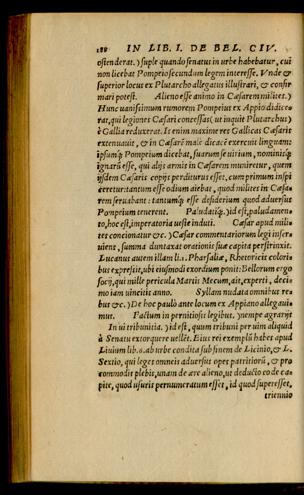 188 IN LIB. I. DE BEL. CIV.
ostenderat.) suple quando senatus in urbe habebatur, cui
non licebat Pompeio secundum legem interesse. Vnde &
superior locus ex Plutarcho allegatus illustrari, & confir
mari potest. Alieno esse animo in Cæsarem milites.)
Hunc uanissimum rumorem Pompeius ex Appio didice
rat, qui legiones Cæsari concessas (ut inquit Plutarchus)
è Gallia reduxerat. Is enim maxime res Gallicas Cæsaris
extenuauit, & in Cæsarē male dicacē exercuit linguam:
ipsumq́; Pompeium dicebat, suarum uirium, nominisq́;
ignarū esse, qui alijs armis in Cæsarem muniretur, quem
ijsdem Cæsaris copijs perditurus esset, cum primum inspi
ceretur: tantum esse odium aiebat, quod milites in Cæsa-
rem seruabant: tantumq́; esse desiderium quod aduersus
Pompeium tenerent. Paludatiq́;.) id est, paludamen-
to, hoc est, imperatoria ueste induti. Cæsar apud mili
tes concionatur &c.) Cæsar commentariorum legi inser
uiens, summa duntaxat orationis suæ capita perstrinxit.
Lucanus autem illam li. 1. Pharsaliæ, Rhetoricis colori
bus expressit, ubi eiusmodi exordium ponit: Bellorum ergo
socij, qui mille pericula Martis Mecum, ait, experti, deci-
mo iam uincitis anno. Syllam nudata omnibus re
bus &c.) De hoc paulò ante locum ex Appiano allegaui-
mus. Factum in pernitiosis legibus.) nempe agrarijs
In ui tribunitia.) id est, quum tribuni per uim aliquid
à Senatu extorquere uellēt. Eius rei exemplū habes apud
Liuium lib. 6. ab urbe condita sub finem de Licinio, & L.
Sextio, qui leges omneis aduersus opes patritiorū, & pro
commodis plebis, unam de ære alieno, ut deducto eo de ca-
pite, quod usuris pernumeratum esset, id quod superesset,
triennio